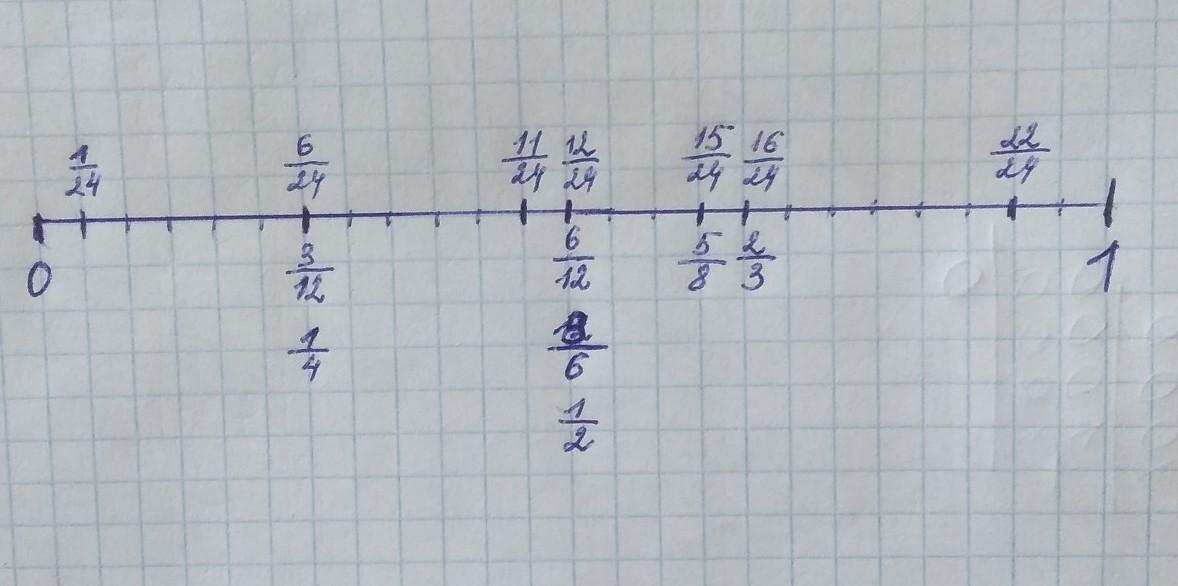 1/24 6/24 11/24 12/24 15/24 16/24 22/24
0 3/12 6/12 5/8 2/3 1
1/4 /6
1/2